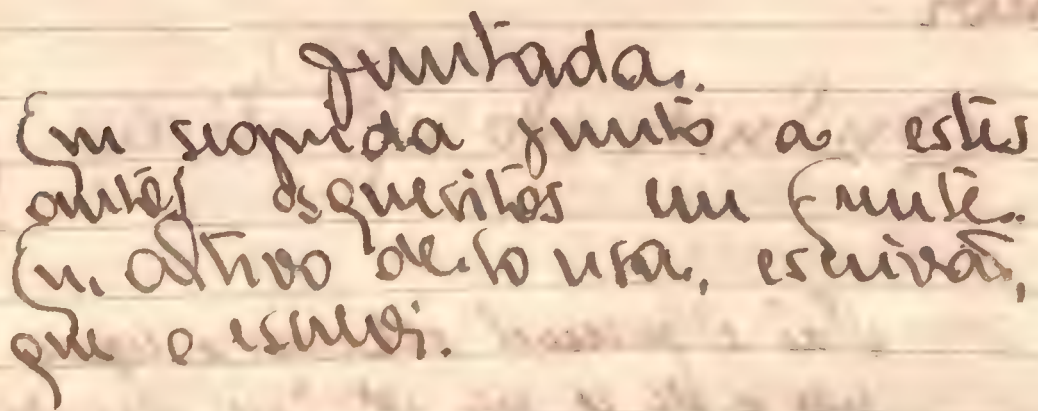 Juntada.
Em seguida junto a estes
autos os quesitos em frente.
Eu, de Souza, escrivão,
que o escrevi.